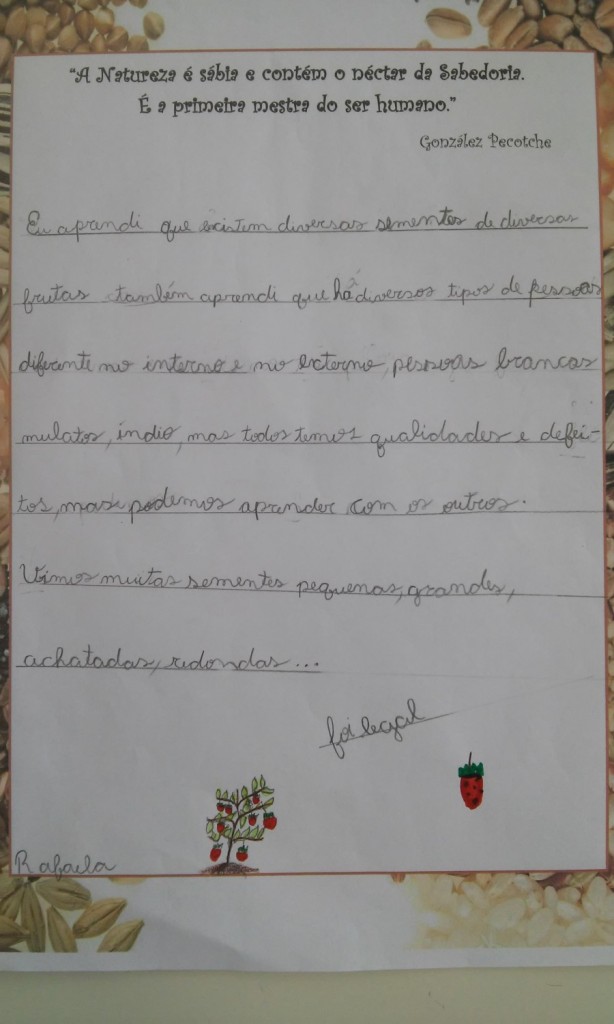 “A Natureza é sábia e contém o néctar da Sabedoria.
É a primeira mestra do ser humano.”
González Pecotche
Eu aprendi que existem diversas sementes de diversas
frutas também aprendi que há diversos tipos de pessoas
diferente no interno e no externo, pessoas brancas
mulatos, índio, mas todos temos qualidades e defei-
tos, mas podemos aprender com os outros.
Vimos muitas sementes pequenas, grandes,
achatadas, redondas...
foi legal
Rafaela